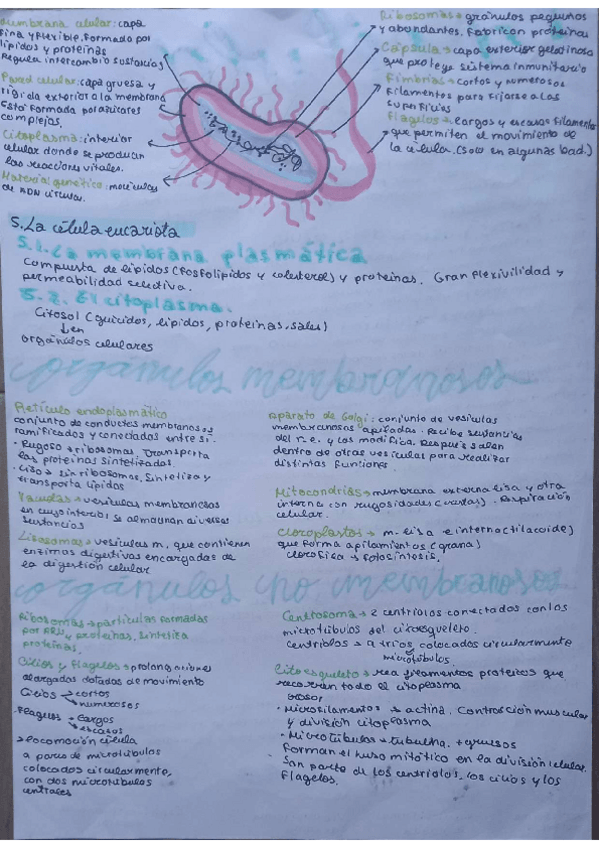 Membrana celular: capa
fina y flexible. Formada por
lípidos y proteínas
Regula intercambio sustancias
Pared celular: capa gruesa y
rígida exterior a la membrana
Está formada por azúcares
complejos.
Citoplasma: interior
celular donde se producen
las reacciones vitales.
Material genético: moléculas
de ADN circular.
Ribosomas → gránulos pequeños
y abundantes. Fabrican proteínas
Cápsula → capa exterior gelatinosa
que protege sistema inmunitario
Fimbrias → cortos y numerosos
filamentos para fijarse a las
superficies
Flagelos → largos y escasos filamentos
que permiten el movimiento de
la célula. (solo en algunas bact.)
5. La célula eucariota
5.1. La membrana plasmática
Compuesta de lípidos (fosfolípidos y colesterol) y proteínas. Gran flexivilidad y
permeabilidad selectiva.
5.2. El citoplasma.
Citosol (glúcidos, lípidos, proteínas, sales)
↓ en
orgánulos celulares
orgánulos membranosos
Retículo endoplasmático
conjunto de conductos membranosos
ramificados y conectados entre sí.
· Rugoso → ribosomas. Transporta
las proteínas sintetizadas.
· Liso → sin ribosomas. Sintetiza y
transporta lípidos
Vacuolas → vesículas membranosas
en cuyo interior se almacenan diversas
sustancias
Lisosomas → vesículas m. que contienen
enzimas digestivas encargadas de
la digestión celular
Aparato de Golgi: conjunto de vesículas
membranosas apiladas. Recibe sustancias
del r.e. y las modifica. Después salen
dentro de otras vesículas para realizar
distintas funciones.
Mitocondrias → membrana externa lisa y otra
interna con rugosidades (crestas). Respiración
celular.
Cloroplastos → m. lisa e interna (tilacoide)
que forma apilamientos (grana)
clorofila → fotosíntesis.
orgánulos no membranosos
Ribosomas → partículas formadas
por ARN y proteínas. Sintetiza
proteínas.
Cilios y flagelos → prolongaciones
alargadas dotadas de movimiento
Cilios → cortos
→ numerosos
Flagelos → largos
→ escasos
→ locomoción célula
a parte de microtúbulos
colocados circularmente,
con dos microtúbulos
centrales
Centrosoma → 2 centriolos conectados con los
microtúbulos del citoesqueleto.
centriolos → 9 tríos colocados circularmente
microtúbulos.
Citoesqueleto → red filamentos proteicos que
recorren todo el citoplasma
· Microfilamentos → actina. Contracción muscular
y división citoplasma
· Microtúbulos → tubulina. + gruesos
Forman el huso mitótico en la división celular.
San parte de los centriolos, los cilios y los
flagelos.